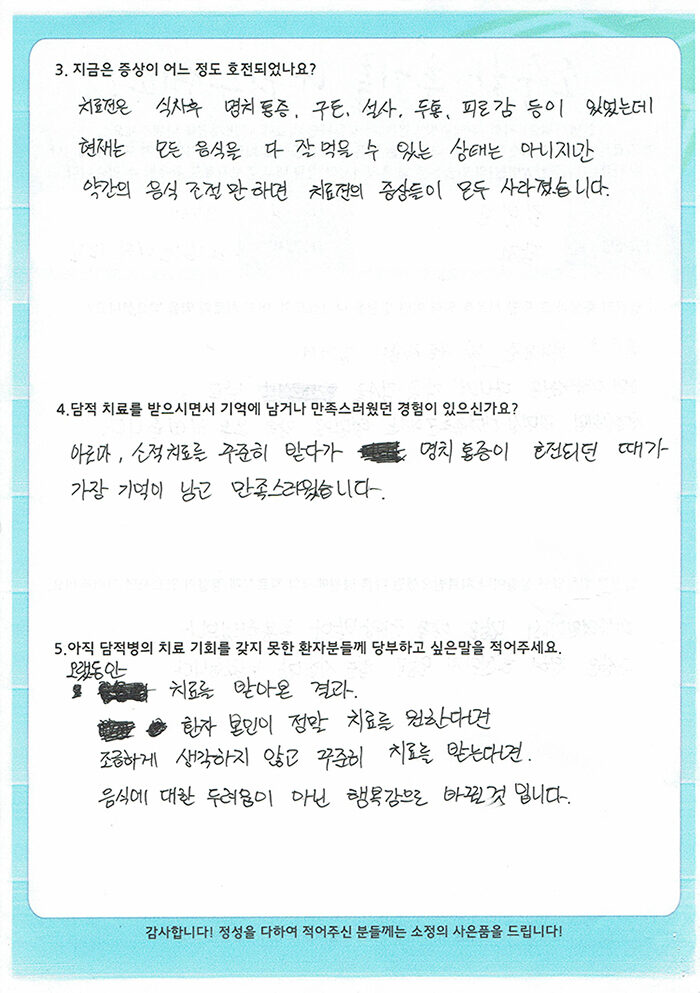 3. 지금은 증상이 어느 정도 호전되었나요?
치료전은 식사후 명치통증, 구토, 설사, 두통, 피로감 등이 있었는데
현재는 모든 음식을 다 잘 먹을 수 있는 상태는 아니지만
약간의 음식 조절만 하면 치료전의 증상들이 모두 사라졌습니다.
4.담적 치료를 받으시면서 기억에 남거나 만족스러웠던 경험이 있으신가요?
아로마, 소적치료를 꾸준히 받다가 명치통증이 호전되던 때가
가장 기억이 남고 만족스러웠습니다.
5.아직 담적병의 치료 기회를 갖지 못한 환자분들께 당부하고 싶은말을 적어주세요.
오랫동안
치료를 받아온 결과.
환자 본인이 정말 치료를 원한다면
조급하게 생각하지 않고 꾸준히 치료를 받는다면.
음식에 대한 두려움이 아닌 행복감으로 바뀔것 입니다.
감사합니다! 정성을 다하여 적어주신 분들께는 소정의 사은품을 드립니다!